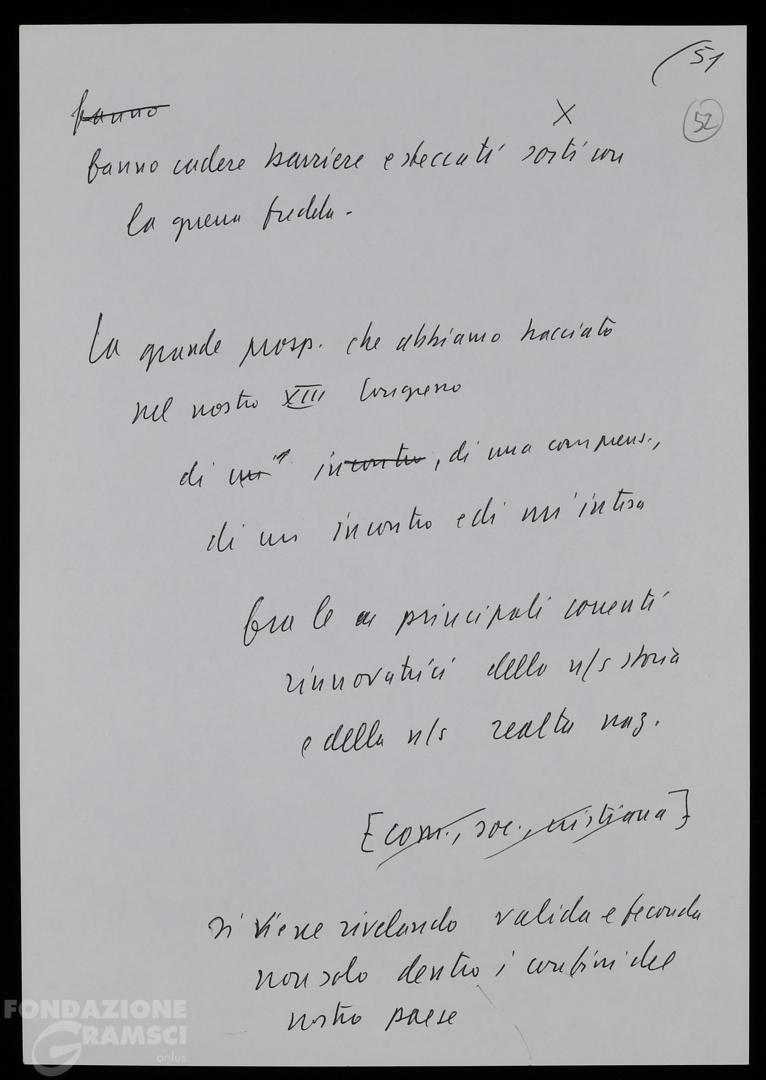 (51
52
X
fanno
fanno cadere barriere e steccati sorti con
la guerra fredda.
La grande prosp. che abbiamo tracciato
nel nostro XIII Congresso
di un' incontro, di una comprens.,
di un incontro e di un'intesa
fra le principali correnti
rinnovatrici della n/s storia
e della n/s realtà naz.
[com., soc., cristiana]
si viene rivelando valida e feconda
non solo dentro i confini del
nostro paese
FONDAZIONE
GRAMSCI
onlus